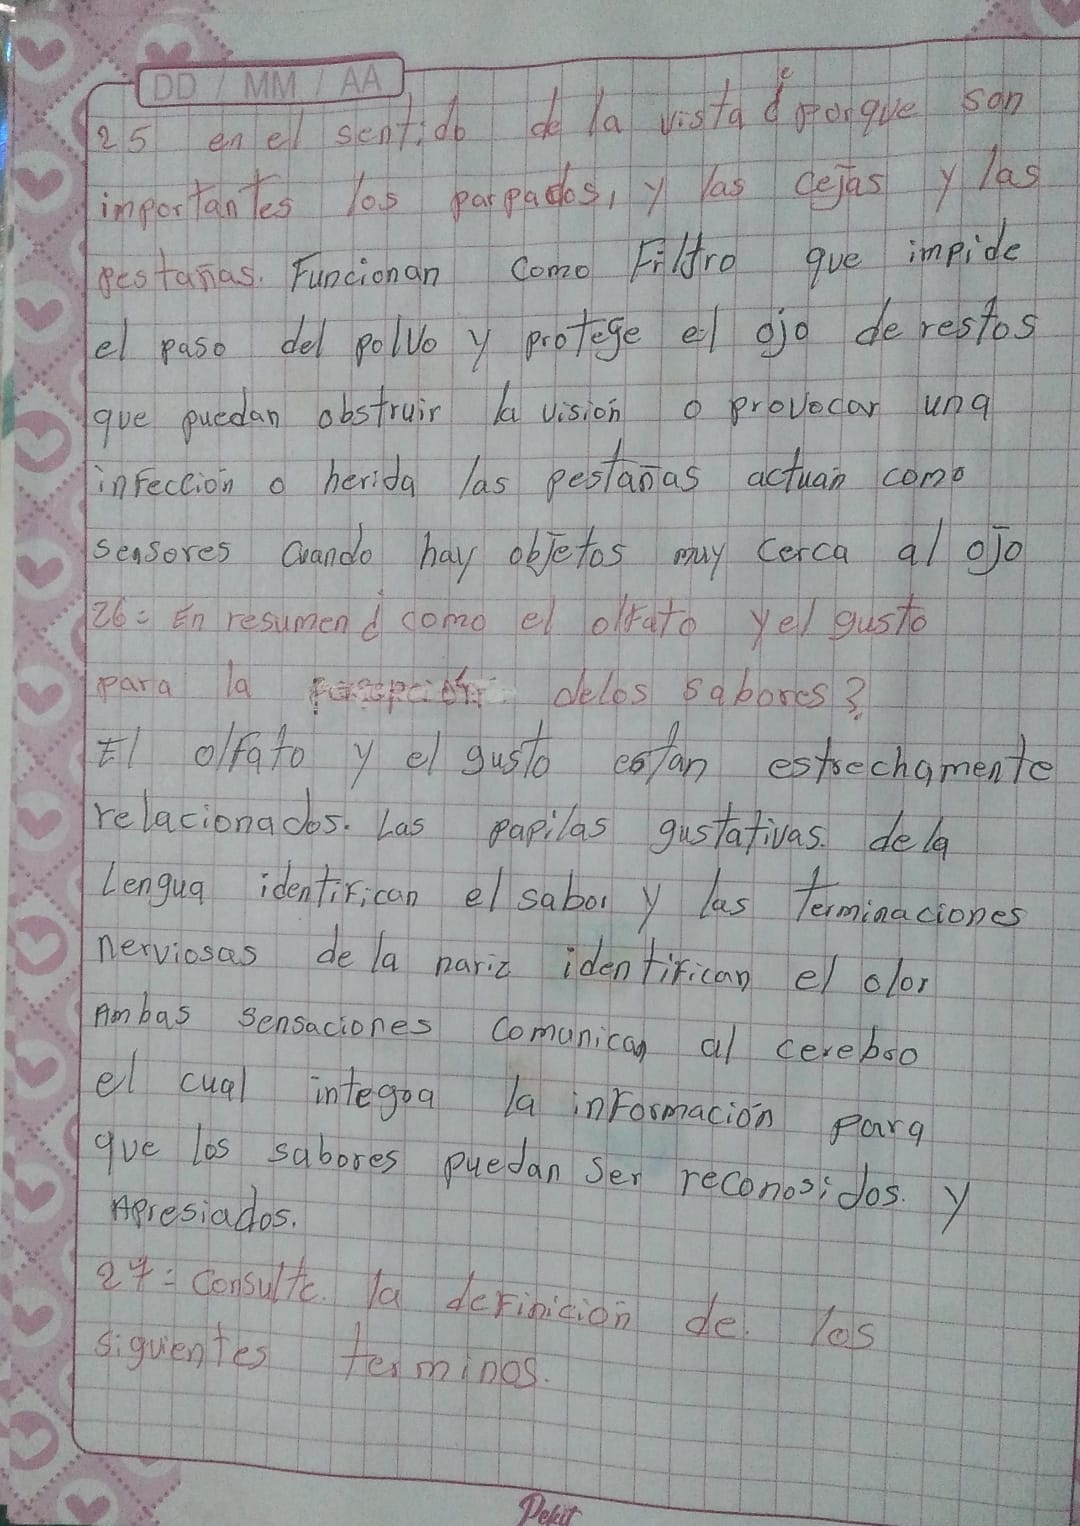 DD / MM / AA
25 en el sentido de la vista ¿porque son
importantes los parpados, y las cejas y las
pestañas. Funcionan como Filtro que impide
el paso del polvo y protege el ojo de restos
que puedan obstruir la visión o provocar una
infección o herida las pestañas actuan como
sensores cuando hay objetos muy cerca al ojo
26= En resumen ¿como el olfato y el gusto
para la delos sabores?
El olfato y el gusto estan estrechamente
relacionados. Las papilas gustativas. de la
Lengua identifican el sabor y las terminaciones
nerviosas de la nariz identifican el olor
Ambas sensaciones comunican al cerebro
el cual integra la información para
que los sabores puedan ser reconosidos. y
Apresiados.
27= Consulte. la definición de. los
siguientes terminos.
Pekit